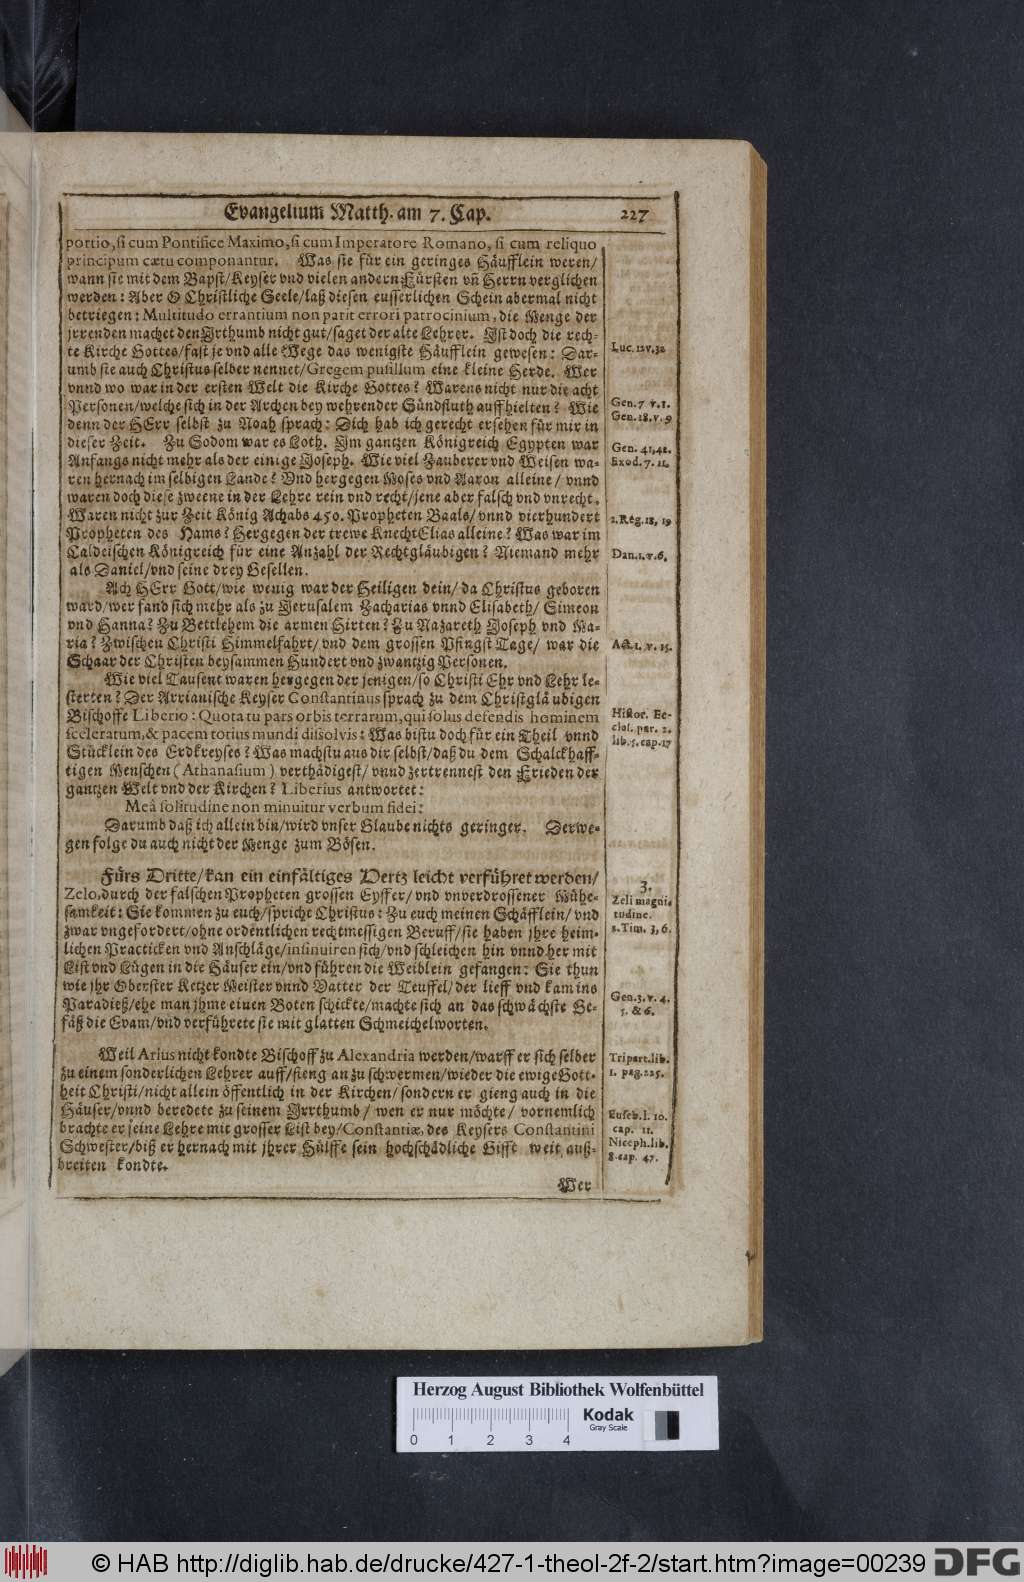 Evangelium Matth. am 7. Cap. 227
portio, si cum Pontifice Maximo, si cum Imperatore Romano, si cum reliquo
principum cætu componantur. Was sie für ein geringes Häufflein weren/
wann sie mit dem Bapst/Keyser vnd vielen andern Fürsten vñ Herrn verglichen
werden: Aber O Christliche Seele/laß diesen eusserlichen Schein abermal nicht
betriegen: Multitudo errantium non parit errori patrocinium, die Menge der
jrrenden machet den Irthumb nicht gut/saget der alte Lehrer. Ist doch die rech-
te Kirche Gottes/fast je vnd alle Wege das wenigste Häufflein gewesen: Dar-
umb sie auch Christus selber nennet/Gregem pusillum eine kleine Herde. Wer
vnnd wo war in der ersten Welt die Kirche Gottes? Warens nicht nur die acht
Personen/welche sich in der Archen bey wehrender Sündfluth auffhielten? Wie
denn der HErr selbst zu Noah sprach: Dich hab ich gerecht ersehen für mir in
dieser Zeit. Zu Sodom war es Loth. Im gantzen Königreich Egypten war
Anfangs nicht mehr als der einige Joseph. Wie viel Zauberer vnd Weisen wa-
ren hernach im selbigen Lande? Vnd hergegen Moses vnd Aaron alleine/ vnnd
waren doch diese zweene in der Lehre rein vnd recht/jene aber falsch vnd vnrecht.
Waren nicht zur Zeit König Achabs 450. Propheten Baals/ vnnd vierhundert
Propheten des Hams? Hergegen der trewe Knecht Elias alleine? Was war im
Caldeischen Königreich für eine Anzahl der Rechtgläubigen? Niemand mehr
als Daniel/vnd seine drey Gesellen.
Ach HErr Gott/wie wenig war der Heiligen dein/ da Christus geboren
ward/wer fand sich mehr als zu Jerusalem Zacharias vnnd Elisabeth/ Simeon
vnd Hanna? Zu Bettlehem die armen Hirten? Zu Nazareth Joseph vnd Ma-
ria? Zwischen Christi Himmelfahrt/ vnd dem grossen Pfingst Tage/ war die
Schaar der Christen beysammen Hundert vnd zwantzig Personen.
Wie viel Tausent waren hergegen der jenigen/so Christi Ehr vnd Lehr le-
sterten? Der Arrianische Keyser Constantinus sprach zu dem Christgläubigen
Bischoffe Liberio: Quota tu pars orbis terrarum, qui solus defendis hominem
sceleratum, & pacem totius mundi dissolvis: Was bistu doch für ein Theil vnnd
Stücklein des Erdkreyses? Was machstu aus dir selbst/daß du dem Schalckhaff-
tigen Menschen (Athanasium) verthädigest/ vnnd zertrennest den Frieden der
gantzen Welt vnd der Kirchen? Liberius antwortet:
Meâ solitudine non minuitur verbum fidei:
Darumb daß ich allein bin/wird vnser Glaube nichts geringer. Derwe-
gen folge du auch nicht der Menge zum Bösen.
Fürs Dritte/kan ein einfältiges Hertz leicht verführet werden/
Zelo, durch der falschen Propheten grossen Eyffer/ vnd vnverdrossener Mühe-
samkeit: Sie kommen zu euch/spricht Christus: Zu euch meinen Schäfflein/ vnd
zwar vngefordert/ohne ordentlichen rechtmessigen Beruff/sie haben jhre heim-
lichen Practicken vnd Anschläge/insinuiren sich/vnd schleichen hin vnnd her mit
List vnd Lügen in die Häuser ein/vnd führen die Weiblein gefangen: Sie thun
wie jhr Oberster Ketzer Meister vnnd Vatter der Teuffel/der lieff vnd kam ins
Paradieß/ehe man jhme einen Boten schickte/machte sich an das schwächste Ge-
fäß die Evam/vnd verführete sie mit glatten Schmeichelworten.
Weil Arius nicht kondte Bischoff zu Alexandria werden/warff er sich selber
zu einem sonderlichen Lehrer auff/fieng an zu schwermen/wieder die ewige Gott-
heit Christi/nicht allein öffentlich in der Kirchen/sondern er gieng auch in die
Häuser/vnnd beredete zu seinem Irrthumb/ wen er nur möchte/ vornemlich
brachte er seine Lehre mit grosser List bey/Constantiæ, des Keysers Constantini
Schwester/biß er hernach mit jhrer Hülffe sein hochschädliche Gifft weit auß-
breiten kondte.
Wer
Luc. 12 v. 32
Gen. 7 v. 1.
Gen. 18. v. 9
Gen. 41, 42.
Exod. 7. 11.
2. Reg. 18, 19
Dan. 1. v. 6.
Act. 1. v. 15.
Histor. Ec-
clos. par. 2.
lib. 5. cap. 17
3.
Zeli magni-
tudine.
2. Tim. 3, 6.
Gen. 3. v. 4.
5. & 6.
Tripart. lib.
1. pag. 225.
Euseb. l. 10.
cap. 11.
Niceph. lib.
8. cap. 47.
Herzog August Bibliothek Wolfenbüttel
Kodak
Gray Scale
0 1 2 3 4
© HAB http://diglib.hab.de/drucke/427-1-theol-2f-2/start.htm?image=00239 DFG